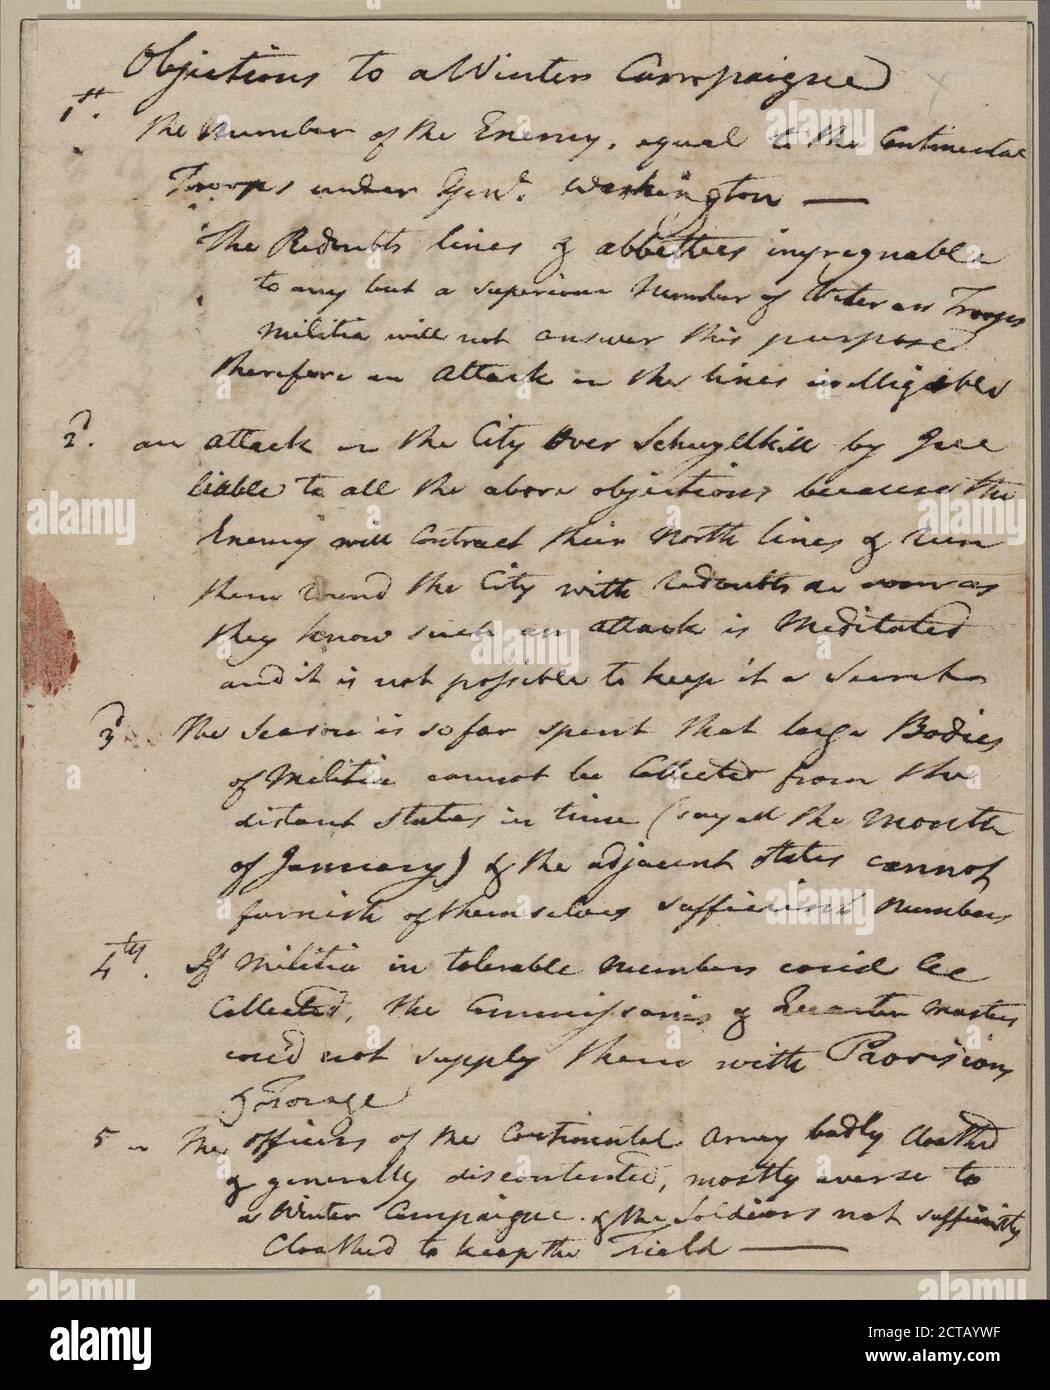 Objections to a Winters Campaigne
1st. the Number of the Enemy, equal to the Continental
Troops under Genl. Washington —
The Redoubts lines & abbettees impregnable
to any but a superiour Number of Veteran Troops
Militia will not answer this purpose
therefore an attack on the lines inelligable
2d. an attack on the City over Schuylkill by Ice
liable to all the above objections because the
Enemy will Contract their North lines & run
them round the City with redoubts as soon as
they know such an attack is Meditated
and it is not possible to keep it a Secret
3d the Season is so far spent that large Bodies
of Militia cannot be Collected from the
distant States in time (say all the Month
of January) & the adjacent States cannot
furnish of themselves sufficient numbers
4th. If Militia in tolerable numbers could be
Collected, the Commissaries & Quarter Masters
could not supply them with Provisions
& Forage
5 - The officers of the Continental Army badly Cloathed
& generally discontented, mostly averse to
a Winter Campaigne. & the Soldiers not sufficiently
Cloathed to keep the Field —
alamy
Image ID: 2CTAYWF
www.alamy.com